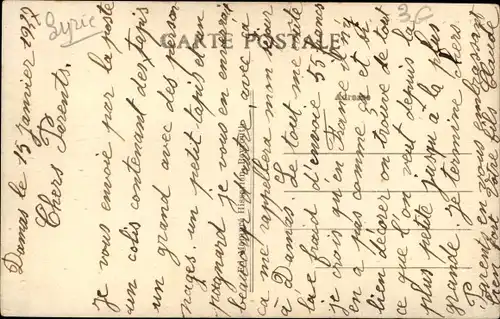 Syrie
3€
CARTE POSTALE
Adresse
Damas le 15 Janvier 1929
Chers Parents.
Je vous envoie par la poste
un colis contenant des tapis
un grand avec des person
nages, un petit tapis et un
poignard je vous en enverrai
beaucoup
avec
ça me rappellera mon séjour
à Damas. Le tout me coûte
les frais d'envoie 55 francs
je crois qu'en France il n'y
en a pas comme ça et
bien décoré on trouve de tout
ce que l'on veut depuis la
plus petite jusqu'à la plus
grande. Je termine chers
Parents en vous embrassant